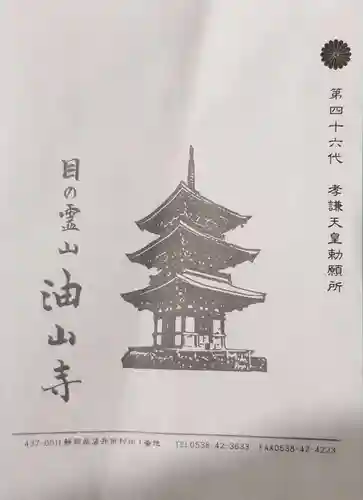 第四十六代　孝謙天皇勅願所
目の霊山
油山寺
437-0011静岡県袋井市村松1番地　TEL0538-42-3633　FAX0538-42-4223